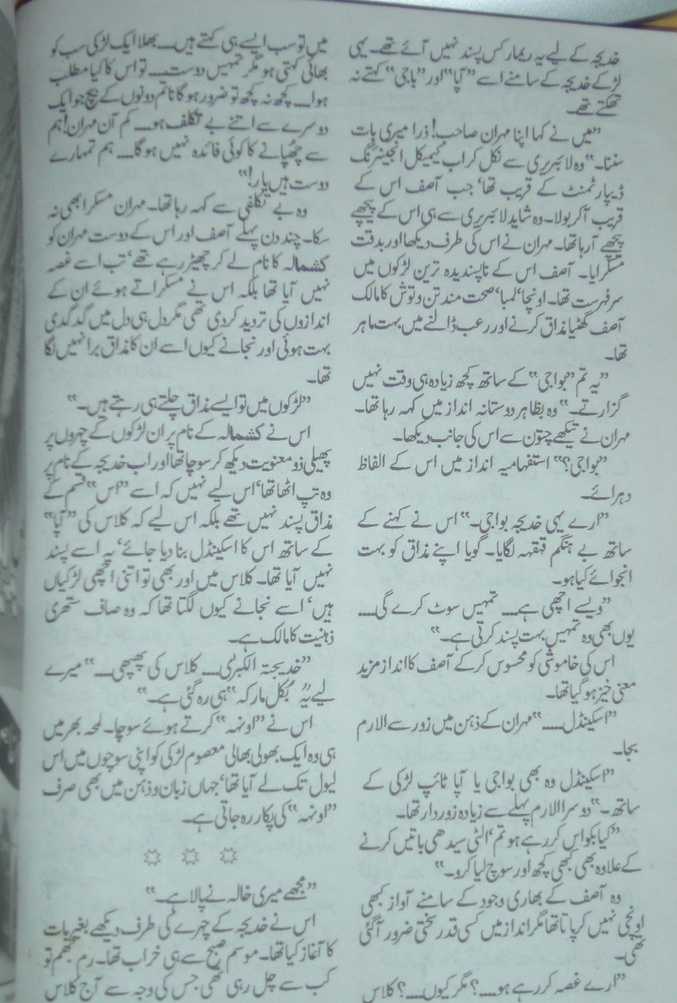 خدیجہ کے لیے یہ ریمارکس پسند نہیں آئے تھے۔ یہی
لڑکے خدیجہ کے سامنے اسے ”آپا“ اور ”باجی“ کہتے نہ
تھکتے تھے۔
”میں نے کہا اپنا مہران صاحب! ذرا میری بات
سننا۔“ وہ لائبریری سے نکل کر اب کیمیکل انجینئرنگ
ڈیپارٹمنٹ کے قریب تھا‘ جب آصف اس کے
قریب آکر بولا۔ وہ شاید لائبریری سے ہی اس کے پیچھے
پیچھے آرہا تھا۔ مہران نے اس کی طرف دیکھا اور بدقت
مسکرایا۔ آصف اس کے ناپسندیدہ ترین لڑکوں میں
سرفہرست تھا۔ اونچا‘ لمبا‘ صحت مند تن و توش کا مالک
آصف گھٹیا مذاق کرنے اور رعب ڈالنے میں بہت ماہر
تھا۔
”یہ تم ”بواجی“ کے ساتھ کچھ زیادہ ہی وقت نہیں
گزارتے۔“ وہ بظاہر دوستانہ انداز میں کہہ رہا تھا۔
مہران نے تیکھے چتون سے اس کی جانب دیکھا۔
”بواجی؟“ استفہامیہ انداز میں اس کے الفاظ
دہرائے۔
”ارے یہی خدیجہ بواجی۔“ اس نے کہنے کے
ساتھ بے ہنگم قہقہہ لگایا۔ گویا اپنے مذاق کو بہت
انجوائے کیا ہو۔
”ویسے اچھی ہے۔۔۔ تمہیں سوٹ کرے گی۔۔۔
یوں بھی وہ تمہیں بہت پسند کرتی ہے۔“
اس کی خاموشی کو محسوس کرکے آصف کا انداز مزید
معنی خیز ہوگیا تھا۔
”اسکینڈل۔۔۔“ مہران کے ذہن میں زور سے الارم
بجا۔
”اسکینڈل وہ بھی بواجی یا آپا ٹائپ لڑکی کے
ساتھ۔“ دوسرا الارم پہلے سے زیادہ زوردار تھا۔
”کیا بکواس کررہے ہو تم‘ الٹی سیدھی باتیں کرنے
کے علاوہ بھی کبھی کچھ اور سوچ لیا کرو۔“
وہ آصف کے بھاری وجود کے سامنے آواز کبھی
اونچی نہیں کرپاتا تھا مگر انداز میں کسی قدر سختی ضرور آگئی
تھی۔
”ارے غصہ کررہے ہو۔۔۔؟ مگر کیوں۔۔۔؟ کلاس
میں تو سب ایسے ہی کہتے ہیں۔۔۔ بھلا ایک لڑکی سب کو
بھائی کہتی ہو مگر تمہیں دوست۔۔۔ تو اس کا کیا مطلب
ہوا۔۔۔ کچھ نہ کچھ تو ضرور ہوگا نا تم دونوں کے بیچ جو ایک
دوسرے سے اتنے بے تکلف ہو۔۔۔ کم آن مہران! ہم
سے چھپانے کا کوئی فائدہ نہیں ہوگا۔۔۔ ہم تمہارے
دوست ہیں یار!“
وہ بے تکلفی سے کہہ رہا تھا۔ مہران مسکرا بھی نہ
سکا۔ چند دن پہلے آصف اور اس کے دوست مہران کو
کشمالہ کا نام لے کر چھیڑ رہے تھے‘ تب اسے غصہ
نہیں آیا تھا بلکہ اس نے مسکراتے ہوئے ان کے
اندازوں کی تردید کردی تھی مگر دل ہی دل میں گدگدی
بہت ہوئی اور نجانے کیوں اسے ان کا مذاق برا نہیں لگا
تھا۔
”لڑکوں میں تو ایسے مذاق چلتے ہی رہتے ہیں۔“
اس نے کشمالہ کے نام پر ان لڑکوں کے چہروں پر
پھیلی ذو معنویت دیکھ کر سوچا تھا اور اب خدیجہ کے نام پر
وہ تپ اٹھا تھا‘ اس لیے نہیں کہ اسے ”اس“ قسم کے
مذاق پسند نہیں تھے بلکہ اس لیے کہ کلاس کی ”آپا“
کے ساتھ اس کا اسکینڈل بنا دیا جائے‘ یہ اسے پسند
نہیں آیا تھا۔ کلاس میں اور بھی تو اتنی اچھی لڑکیاں
ہیں‘ اسے نجانے کیوں لگتا تھا کہ وہ صاف ستھری
ذہنیت کا مالک ہے۔
”خدیجتہ الکبریٰ۔۔۔ کلاس کی پھپھی۔۔۔“ میرے
لیے یہ ”بگل مارکہ“ ہی رہ گئی ہے۔“
اس نے ”اونہہ“ کرتے ہوئے سوچا۔ لمحہ بھر میں
ہی وہ ایک بھولی بھالی معصوم لڑکی کو اپنی سوچوں میں اس
لیول تک لے آیا تھا‘ جہاں زبان و ذہن میں بھی صرف
”اونہہ“ کی پکار رہ جاتی ہے۔
”مجھے میری خالہ نے پالا ہے۔“
اس نے خدیجہ کے چہرے کی طرف دیکھے بغیر بات
کا آغاز کیا تھا۔ موسم صبح سے ہی خراب تھا۔ رم جھم تو
کب سے چل رہی تھی جس کی وجہ سے آج کلاس